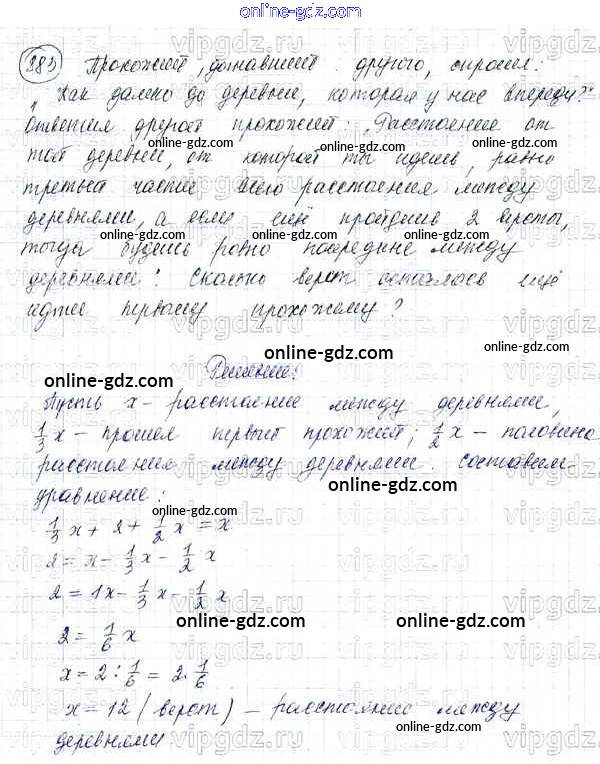 online-gdz.com
383 Прохожий, догнавший другого, спросил:
„Как далеко до деревни, которая у нас впереди?"
Ответил другой прохожий: „Расстояние от
той деревни, от которой ты идешь, равно
третьей части всего расстояния между
деревнями, а если ещё пройдишь 2 версты,
тогда будешь ровно посредине между
деревнями". Сколько верст осталось ещё
идти первому прохожему?
Решение:
Пусть x - расстояние между деревнями,
1/3 x - прошел первый прохожий; 1/2 x - половина
расстояния между деревнями. Составим
уравнение:
1/3 x + 2 + 1/2 x = x
2 = x - 1/3 x - 1/2 x
2 = 1x - 1/3 x - 1/2 x
2 = 1/6 x
x = 2 : 1/6 = 2 · 1/6
x = 12 (верст) - расстояние между
деревнями.